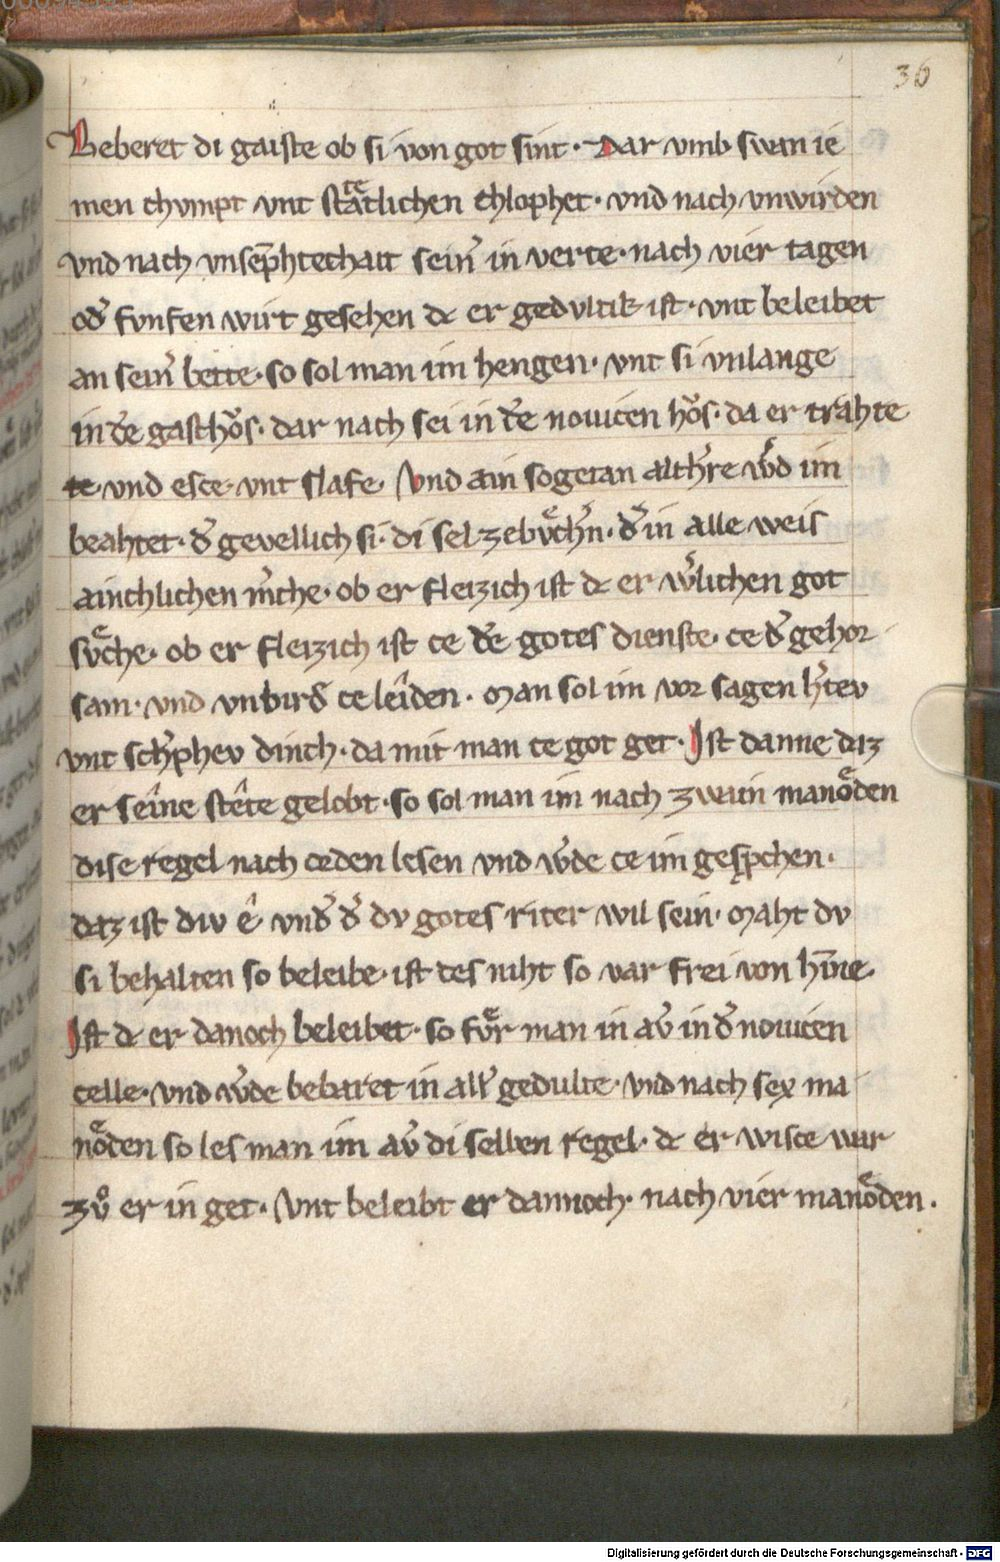 36
Beberet di gaiste ob si von got sint · Dar vmb swan ie
men chvmpt vnt stætlichen chlophet · vnd nach vnwirden
vnd nach vnsēphtechait sein̄ in verte · nach vier tagen
od̄ fvnfen wirt gesehen dc er gedvltik ist · vnt beleibet
an sein̄ bette · so sol man im hengen · vnt si vnlange
in dē gasthỏs · dar nach sei in dē nouicen hỏs · da er trahte
te · vnd esce · vnt slafe · Vnd ain sogetan altħre w̄d im
beahtet · d̄ gevellich si · di sel zebvͤchn̄ · d̄ in alle weis
ainchlichen m̄che · ob er fleizich ist dc er w̄lichen got
svͤche · ob er fleizich ist ce dē gotes dienste · ce d̄ gehor
sam · vnd vnbird̄ ce leîden · Man sol im vor sagen ħtev
vnt scħphev dinch · da mit man ce got get · Ist danne daz
er seîne stête gelobt · so sol man im nach zwain manoͤden
dise regel nach orden lesen vnd w̄de ce im gesp̄chen ·
daz ist div ê vnd̄ d̄ dv gotes riter wil sein · Maht dv
si behalten so beleibe · ist des niht so var frei von hīne ·
Ist dc er danoch beleibet · so fvͤr man in av̄ in d̄ nouicen
celle · vnd w̄de bebaret in all̄ gedulte · vnd nach sex ma
noͤden so les man im av̄ di selben regel · dc er wisce war
zvͦ er in get · Vnt beleibt er dannoch · nach vier manoͤden ·
Digitalisierung gefördert durch die Deutsche Forschungsgemeinschaft - DFG